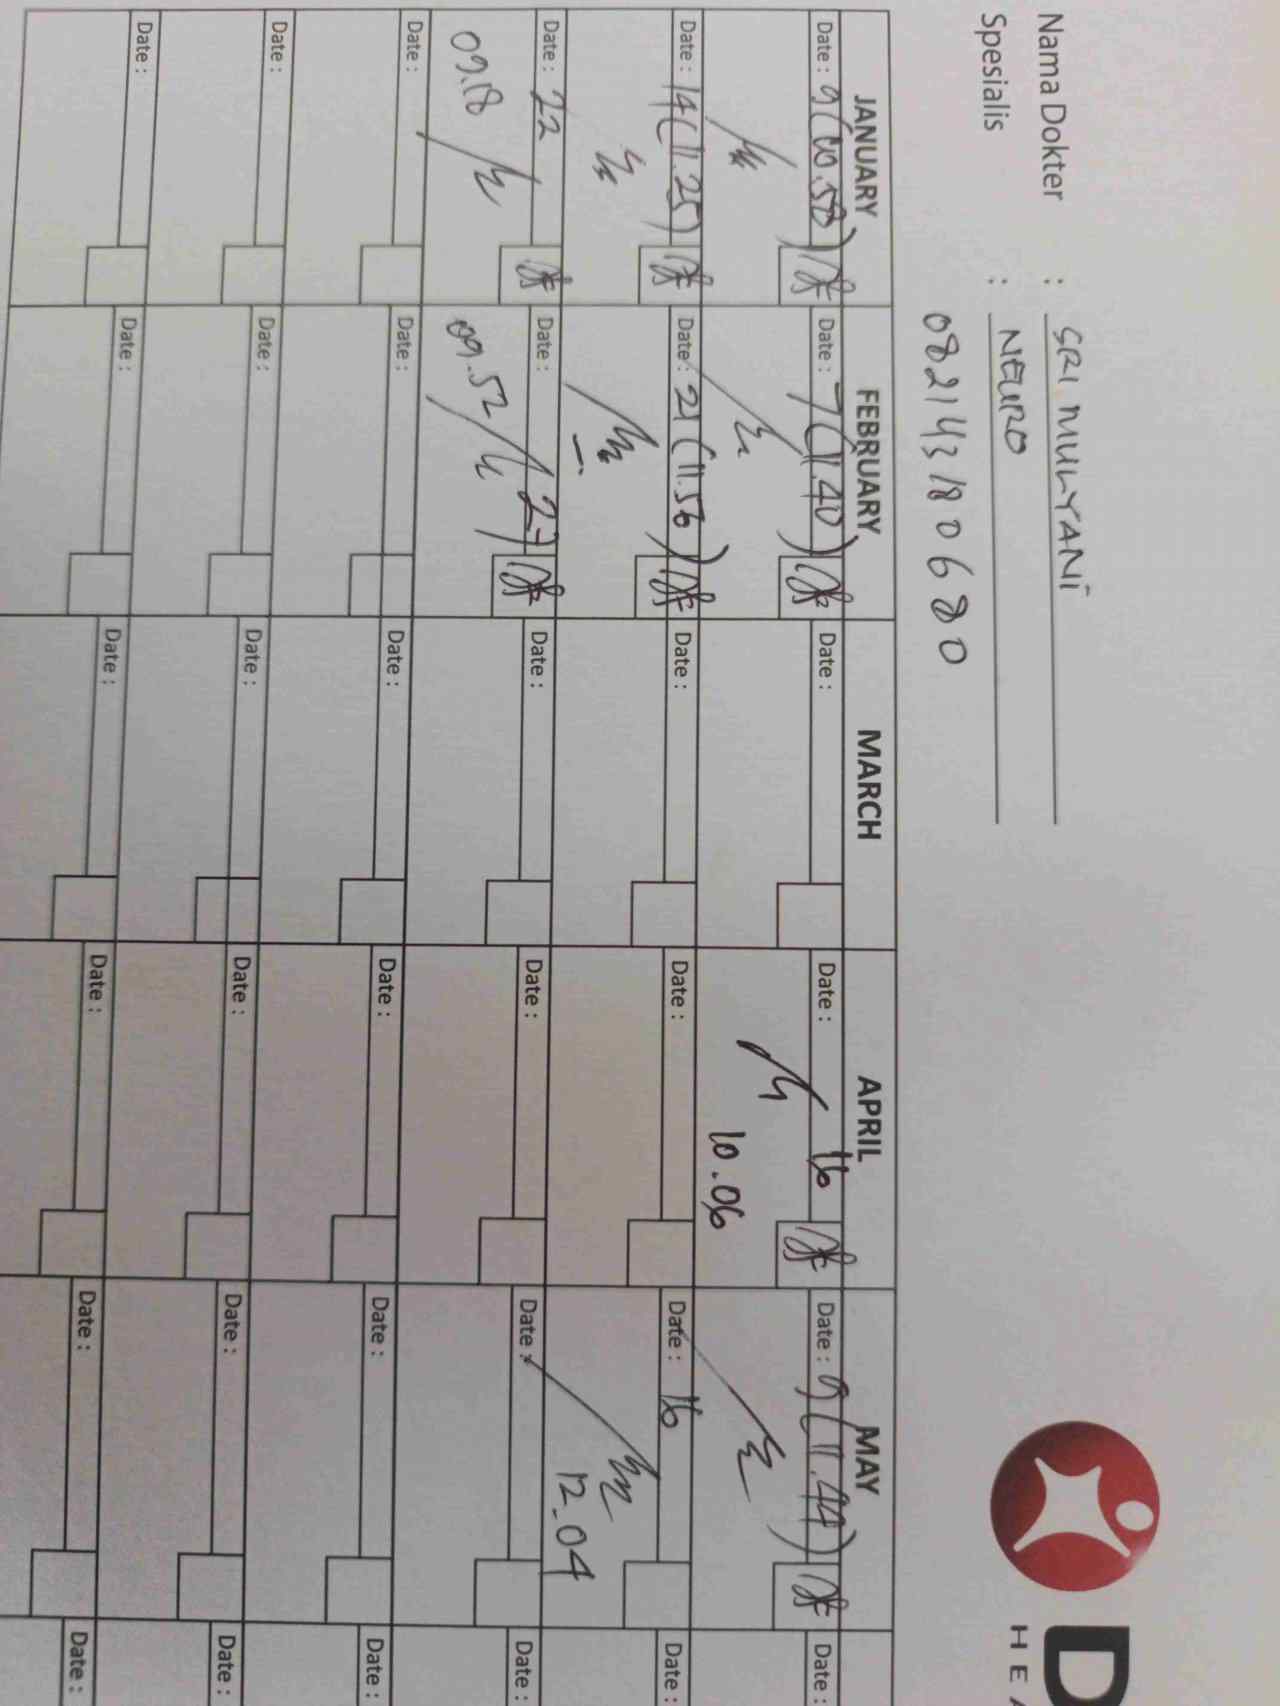 Nama Dokter : SRI MULYANI
Spesialis : NEURO
082143180680
D
HEA
JANUARY FEBRUARY MARCH APRIL MAY
Date : 9 (10.58) Date : 7 (11.40) Date : Date : 16 Date : 9 (11.44) Date :
10.06
Date : 14 (11.25) Date : 21 (11.56) Date : Date : Date : 16 Date :
12.04
Date : 22 Date : 27 Date : Date : Date : Date :
09.18 09.52
Date : Date : Date : Date : Date : Date :
Date : Date : Date : Date : Date : Date :
Date : Date : Date : Date : Date : Date :